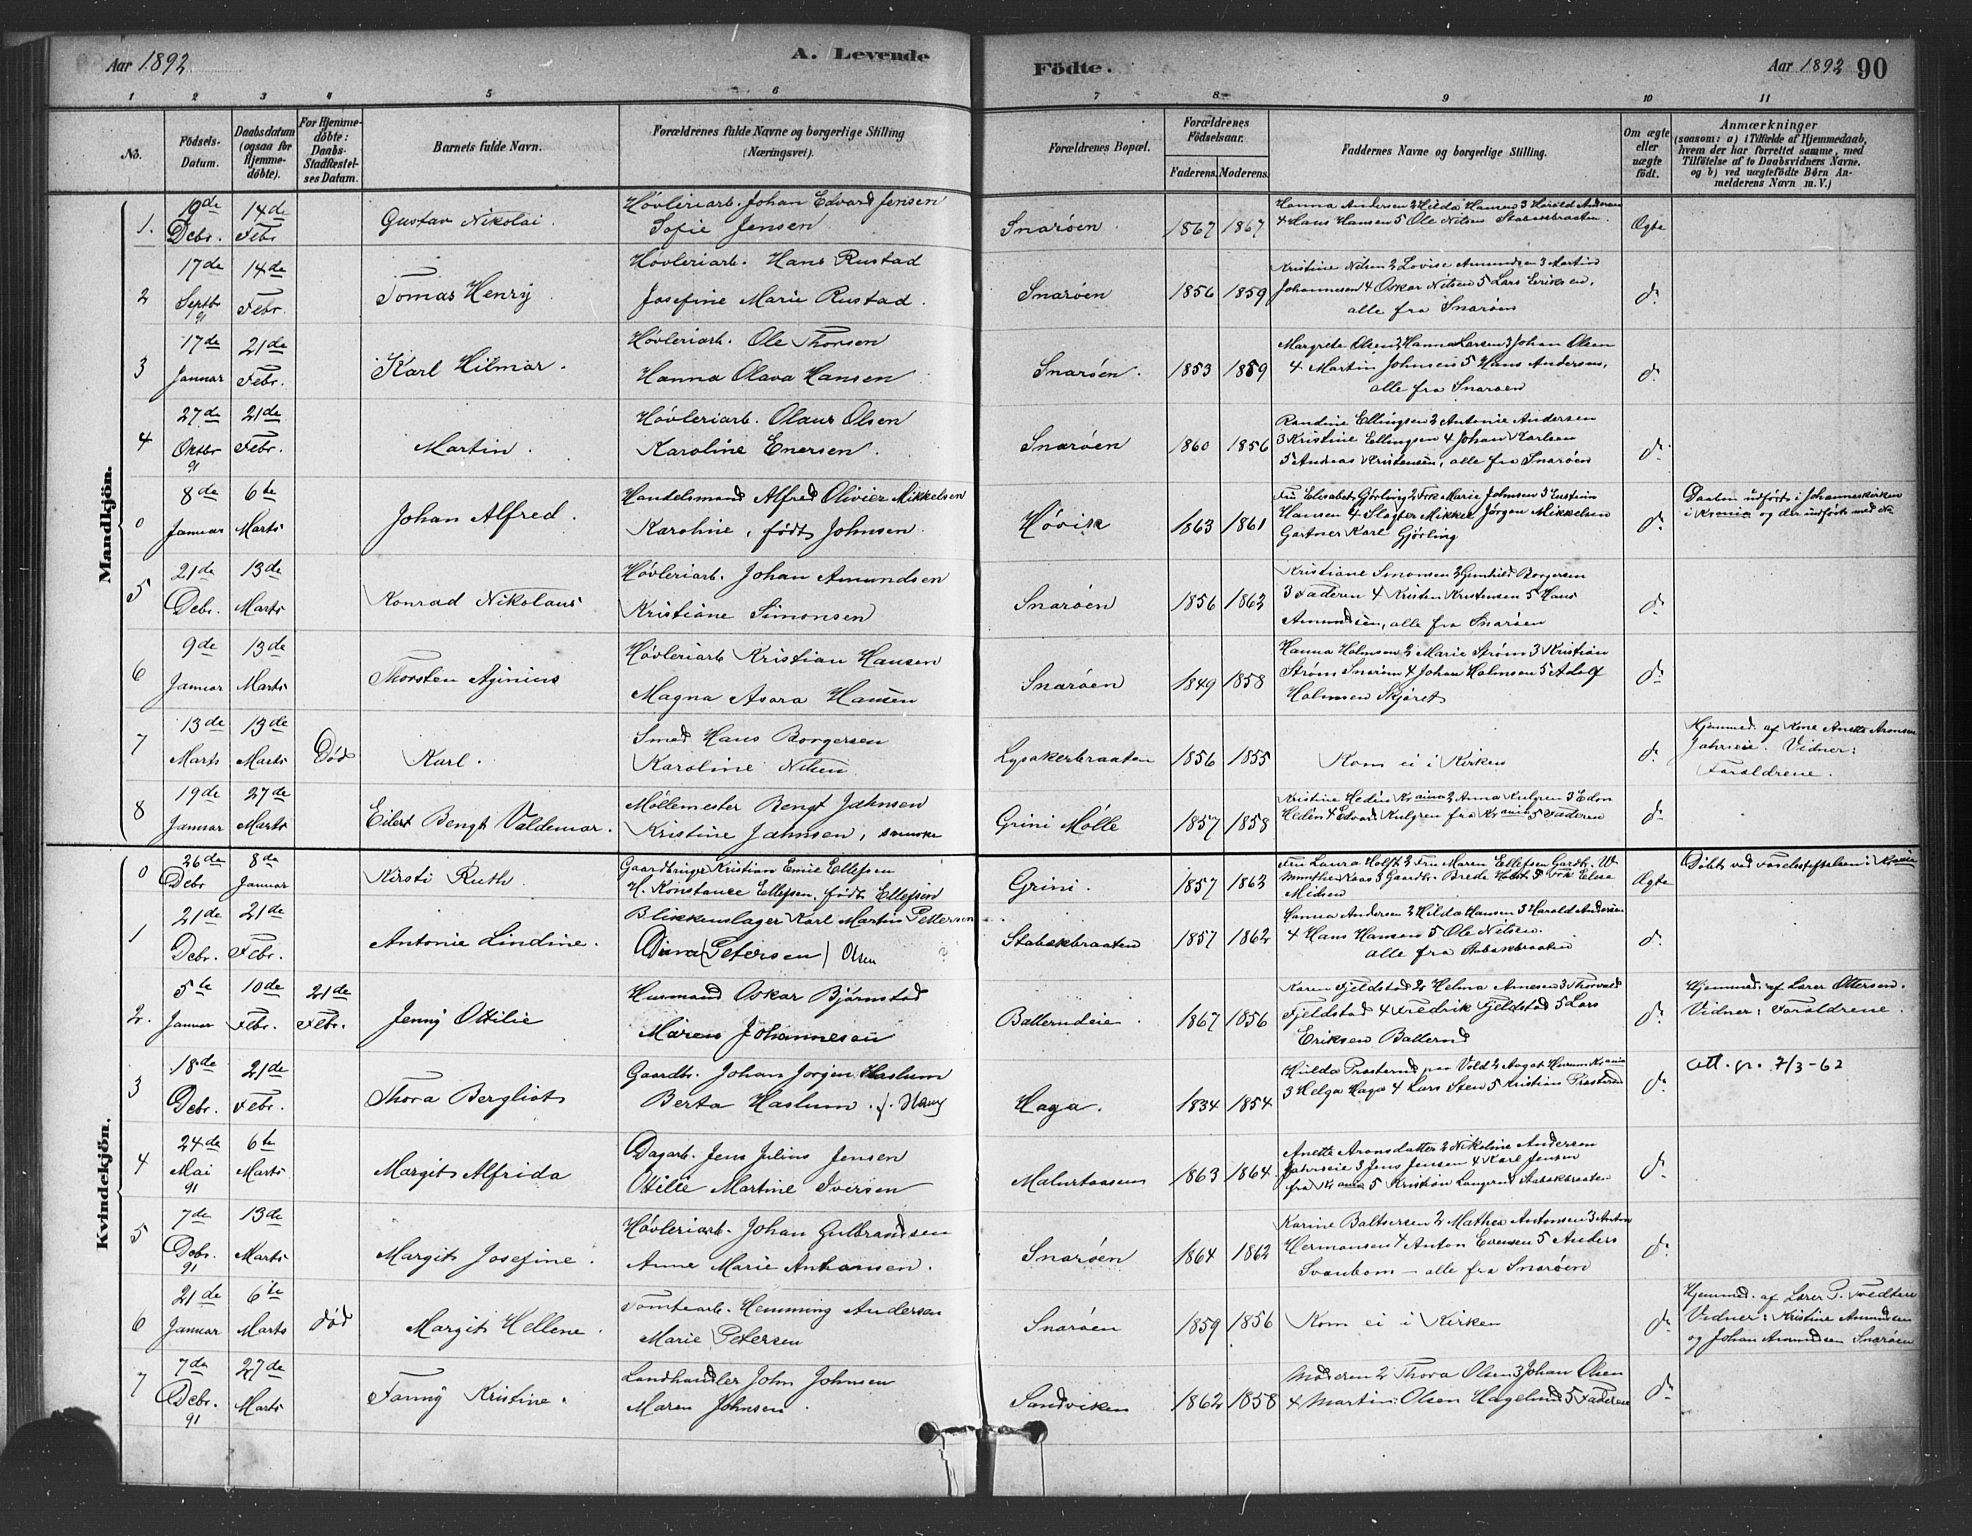 Aar 1892
A. Levende
Födte.
Aar 1892 90
1 2 3 4 5 6 7 8 9 10 11
No.
Födsels-Datum.
Daabsdatum (ogsaa for Hjemme-döbte).
For Hjemme-döbte: Daabs-Stadfæstel-ses Datum.
Barnets fulde Navn.
Forældrenes fulde Navne og borgerlige Stilling (Næringsvei).
Forældrenes Bopæl.
Forældrenes Födselsaar.
Faderens. Moderens.
Faddernes Navne og borgerlige Stilling.
Om ægte eller uægte födt.
Anmærkninger
(saasom: a) i Tilfælde af Hjemmedaab, hvem der har forrettet samme, med Tilföielse af to Daabsvidners Navne. og b) ved uægtefödte Børn An-melderens Navn m. V.)
Mandkjön.
1. 19de Decbr. 14de Febr Gustav Nikolai. Høvleriarb. Johan Edvard Jensen
Sofie Jensen Snarøen. 1867 1867 Hanna Andersen 2 Hilda Hansen 3 Harald Andersen
4 Hans Hansen 5 Ole Nilsen Stabækbraaten. Ægte
2 17de Septbr 91 14de Febr. Tomas Henry Høvleriarb. Hans Rustad
Josefine Marie Rustad. Snarøen 1856 1859 Kristine Nilsen 2 Lovise Amundsen 3 Martin
Johannesen 4 Oskar Nilsen 5 Lars Eriksen,
alle fra Snarøen do
3 17de Januar 21de Febr. Karl Hilmar. Høvleriarb. Ole Thorsen
Hanna Olava Hansen Snarøen. 1853 1859 Margrete Olsen 2 Hanna Larsen 3 Johan Olsen
4 Martin Johnsen 5 Hans Andersen,
alle fra Snarøen do
4 27de Oktbr 91 21de Febr. Martin. Høvleriarb. Olaus Olsen
Karoline Enersen. Snarøen 1860 1856 Randine Ellingsen 2 Antonie Andersen
3 Kristine Ellingsen 4 Johan Karlsen
5 Andreas Kristensen, alle fra Snarøen do
0 8de Januar 6te Marts Johan Alfred. Handelsmand Alfred Olivier Mikkelsen
Karoline, født Johnsen. Høvik 1863 1861 Fru Elisabet Gjørling 2 Frk Marie Johnsen 3
Hansen 4 Slagter Mikkel Jørgen Mikkelsen
Gartner Karl Gjørling do Daaben udført i Johanneskirken
i Krania og der indført med No
5 21de Decbr. 13de Marts Konrad Nikolaus Høvleriarb. Johan Amundsen
Kristiane Simonsen Snarøen 1856 1862 Kristiane Simonsen 2 Gunhild Borgersen
3 Faderen 4 Kristen Kristensen 5 Hans
Amundsen, alle fra Snarøen do
6 9de Januar 13de Marts Thorsten Aginius Høvleriarb Kristian Hansen
Magna Asora Hansen Snarøen 1849 1858 Hanna Holmsen 2 Marie Strøm 3 Kristian
Strøm Snarøen 4 Johan Holmsen 5 Adolf
Holmsen Skjæret do
7 13de Marts 13de Marts Død Karl. Smed Hans Borgersen
Karoline Nilsen Lysakerbraaten 1856 1855 Kom ei i Kirken do Hjemmed. af Kone Anette Aronsen
Jahrseie. Vidner:
Forældrene.
8 19de Januar 27de Marts Eilert Bengt Valdemar. Møllemester Bengt Jahnsen
Kristine Jahnsen, svenske Grini Mølle 1857 1858 Kristine Hedén Krania 2 Anna Kulgren 3 Edon
Hedén 4 Edvard Kulgren fra Krania 5 Faderen do
Kvindekjön.
0 26de Decbr 8de Januar Kirsti Ruth. Gaardbruger Kristian Emie Ellefsen
H. Konstance Ellefsen, født Ellefsen Grini. 1857 1863 Fru Laura Holst 2 Fru Maren Ellefsen Gardb. W.
Munthe Kaas 3 Gaardbr. Brede Holst 5 Frk Elise
Ægte Døbt ved Fødselsstiftelsen i Krania
1 21de Decbr. 21de Febr. Antonie Lindine. Blikkenslager Karl Martin Pettersen
Dina (Petersen) Olsen ? Stabækbraaten 1857 1862 Hanna Andersen 2 Hilda Hansen 3 Harald Andersen
4 Hans Hansen 5 Ole Nilsen.
alle fra Stabækbraaten do
2. 5te Januar 10de Febr. 21de Febr. Jenny Otilie Husmand Oskar Bjørnstad
Maren Johannesen Ballerudeie. 1867 1856 Karen Fjeldstad 2 Helma Arnesen 3 Thorvald
Fjeldstad 4 Fredrik Fjeldstad 5 Lars
Eriksen Ballerud do Hjemmed. af Lærer Ottersen.
Vidner: Forældrene.
3 18de Decbr. 21de Febr. Thora Bergliot Gaardbr. Johan Jørgen Haslum
Berta Haslum. f. Haug Haga. 1834 1854 Hulda Præsterud paa Vold 2 Aagot Hurum Krania
3 Helga Haga 4 Lars Sten 5 Kristian Præsterud do att. gr. 7/3-62
4 24de Mai 91 6te Marts Margit Alfrida Dagarb. Jens Julius Jensen
Otilie Martine Iversen 1863 1864 Anette Aronsdatter 2 Nikoline Andersen
Jahrseie 3 Jens Jensen 4 Karl Jensen
fra Krania 5 Kristian Langerud Stabækbraaten do
5 7de Decbr. 91 13de Marts Margit Josefine. Høvleriarb. Johan Gulbrandsen
Anne Marie Anthonsen. Snarøen 1864 1862 Karine Baltsersen 2 Mathea Antonsen 3 Anton
Hermansen 4 Anton Evensen 5 Anders
Svanbom — alle fra Snarøen do
6 21de Januar 6te Marts død Margit Hellene. Tomtearb. Hemming Andersen
Marie Petersen Snarøen 1859 1856 Kom ei i Kirken do Hjemmed. af Lærer P. Tvedten
Vidner: Kristine Amundsen
og Johan Amundsen Snarøen
7 7de Decbr. 91 27de Marts Fanny Kristine. Landhandler John Johnsen
Maren Johnsen. Sandviken 1862 1858 Moderen 2 Thora Olsen 3 Johan Olsen
4 Martin Olsen Hagelund 5 Faderen do